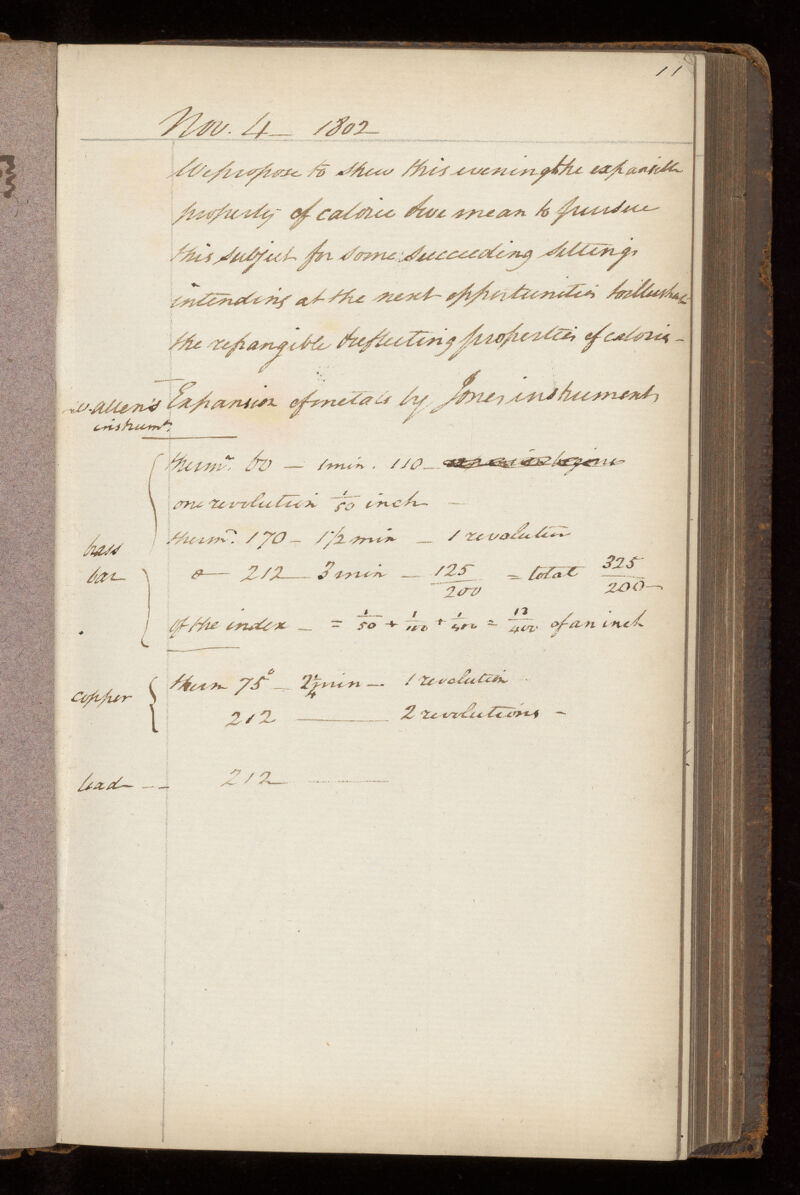 11
Nov. 4 — 1802
We propose to shew this evening the expansible
property of caloric & we mean to pursue
this subject for some succeeding sittings
intending at the next opportunities to illustrate
the refrangible & reflecting properties of caloric —
W. Allen's Expansion of metals by Jones instruments
instrumts.
thermr. 60 — 1 min. 110 —
one revolution 1/50 inch —
thermr. 170 — 1 1/2 min — 1 revolution
brass
bar 212 — 3 min — 125/200 = total 325/200
of the index — = 1/50 + 1/100 + 1/400 = 13/400 of an inch
copper therm 75° — 2 1/4 min — 1 revolution
212 — 2 revolutions —
lead — — 212 —